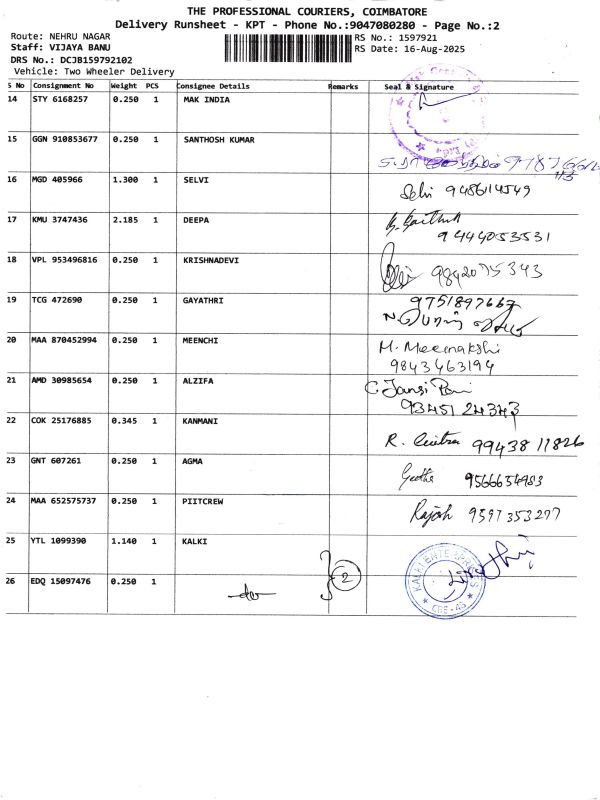 THE PROFESSIONAL COURIERS, COIMBATORE
Delivery Runsheet - KPT - Phone No.:9047080280 - Page No.:2
Route: NEHRU NAGAR
Staff: VIJAYA BANU
DRS No.: DCJB159792102
Vehicle: Two Wheeler Delivery
RS No.: 1597921
RS Date: 16-Aug-2025
S No Consignment No Weight PCS Consignee Details Remarks Seal & Signature
14 STY 6168257 0.250 1 MAK INDIA
15 GGN 910853677 0.250 1 SANTHOSH KUMAR
16 MGD 405966 1.300 1 SELVI
Selvi 9486114549
17 KMU 3747436 2.185 1 DEEPA
9444053531
18 VPL 953496816 0.250 1 KRISHNADEVI
9842075343
19 TCG 472690 0.250 1 GAYATHRI
9751897667
20 MAA 870452994 0.250 1 MEENCHI
M. Meenakshi
9843463194
21 AMD 30985654 0.250 1 ALZIFA
C. Jansi Rani
9345124343
22 COK 25176885 0.345 1 KANMANI
R. Chitra 9943811826
23 GNT 607261 0.250 1 AGMA
Geetha 9566654983
24 MAA 652575737 0.250 1 PIITCREW
Rajesh 9597353277
25 YTL 1099390 1.140 1 KALKI
KALKI ENTERPRISES
CBE-45
26 EDQ 15097476 0.250 1
do
2